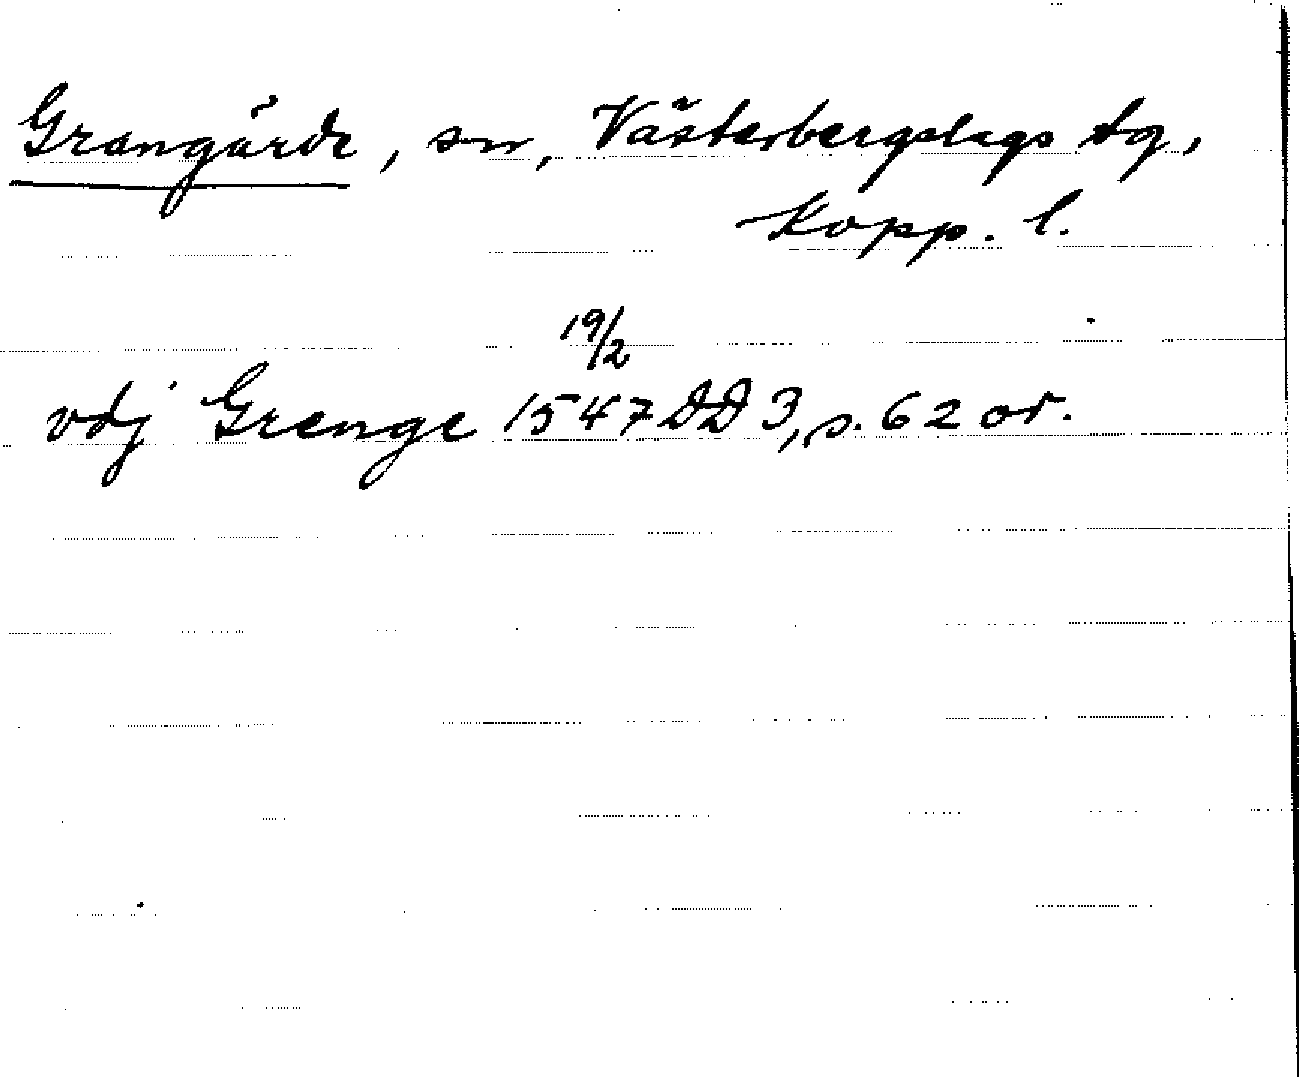 Grangärde, sn, Västerbergslags tg,
Kopp. l.
19/2
vdj Grenge 1547 DD 3, s. 62 or.